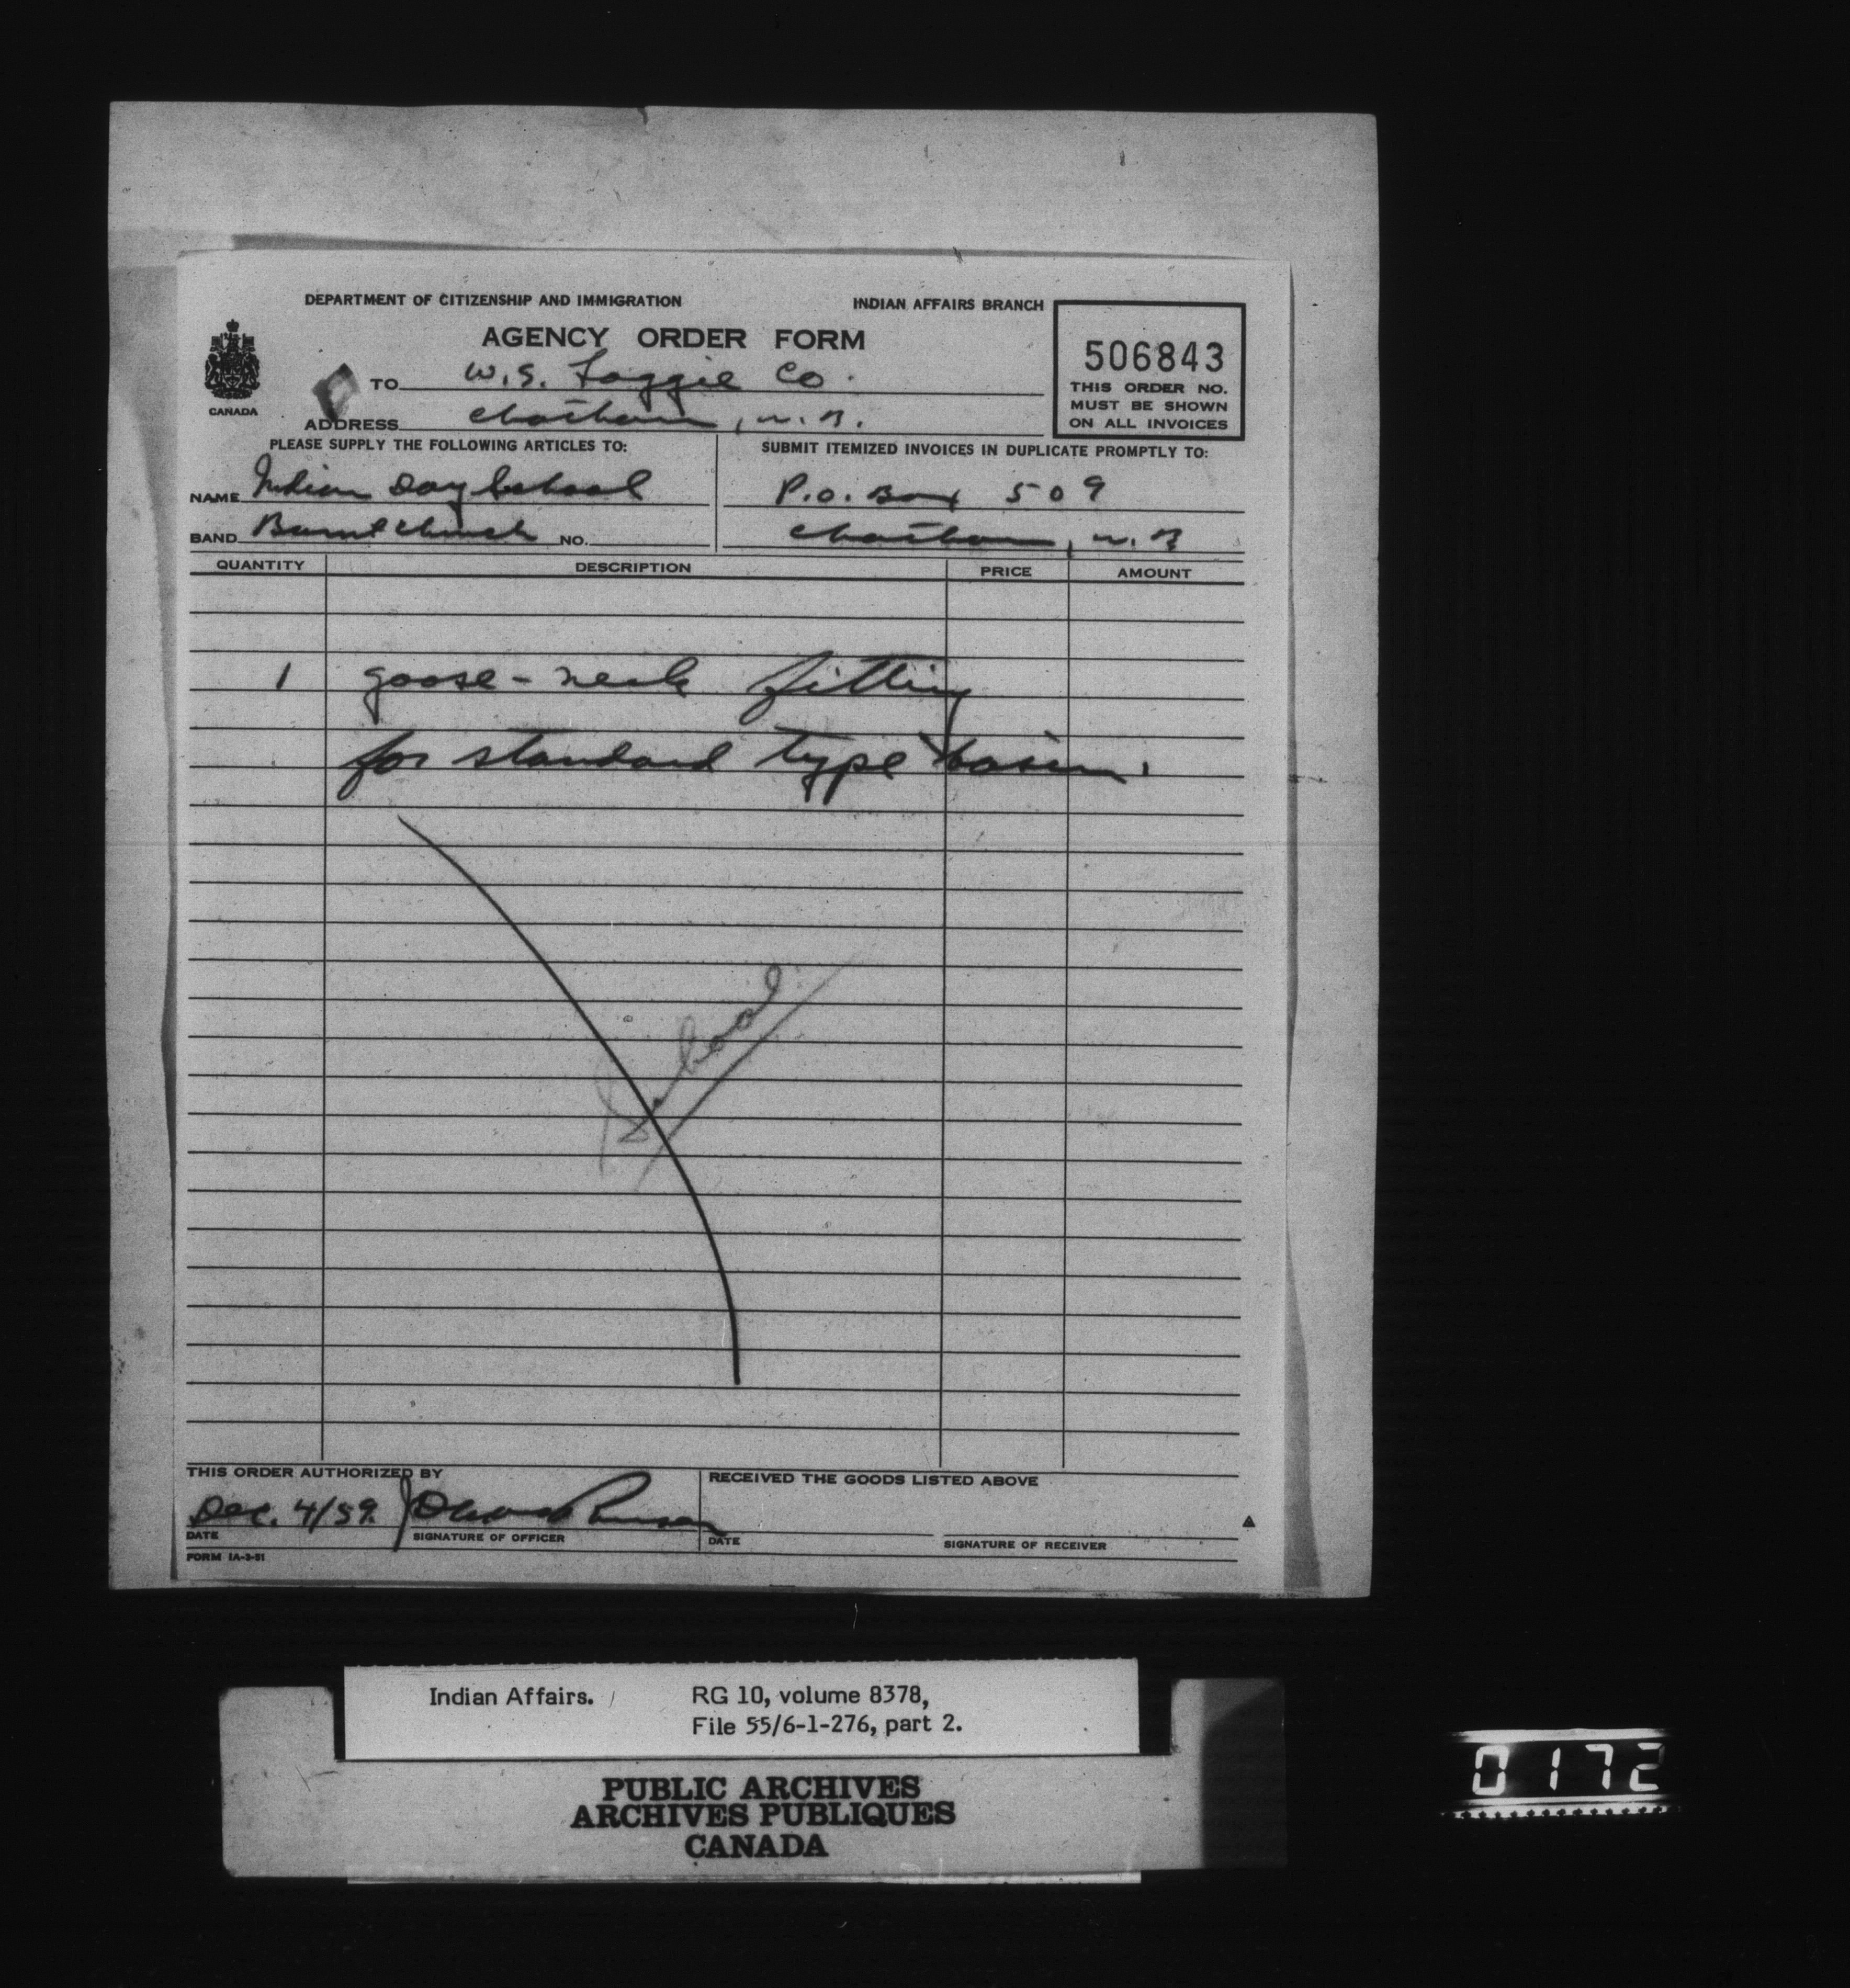 DEPARTMENT OF CITIZENSHIP AND IMMIGRATION INDIAN AFFAIRS BRANCH
AGENCY ORDER FORM
CANADA
506843
THIS ORDER NO.
MUST BE SHOWN
ON ALL INVOICES
TO W.S. Loggie Co.
ADDRESS Chatham, N.B.
PLEASE SUPPLY THE FOLLOWING ARTICLES TO:
NAME Indian Day School
BAND Burnt Church NO.
SUBMIT ITEMIZED INVOICES IN DUPLICATE PROMPTLY TO:
P.O. Box 509
Chatham, N.B
QUANTITY DESCRIPTION PRICE AMOUNT
1 goose-neck fitting
for standard type basin.
School
THIS ORDER AUTHORIZED BY
Dec. 4/59.
DATE SIGNATURE OF OFFICER
RECEIVED THE GOODS LISTED ABOVE
DATE SIGNATURE OF RECEIVER
FORM IA-3-51
Indian Affairs. RG 10, volume 8378,
File 55/6-1-276, part 2.
PUBLIC ARCHIVES
ARCHIVES PUBLIQUES
CANADA
0172